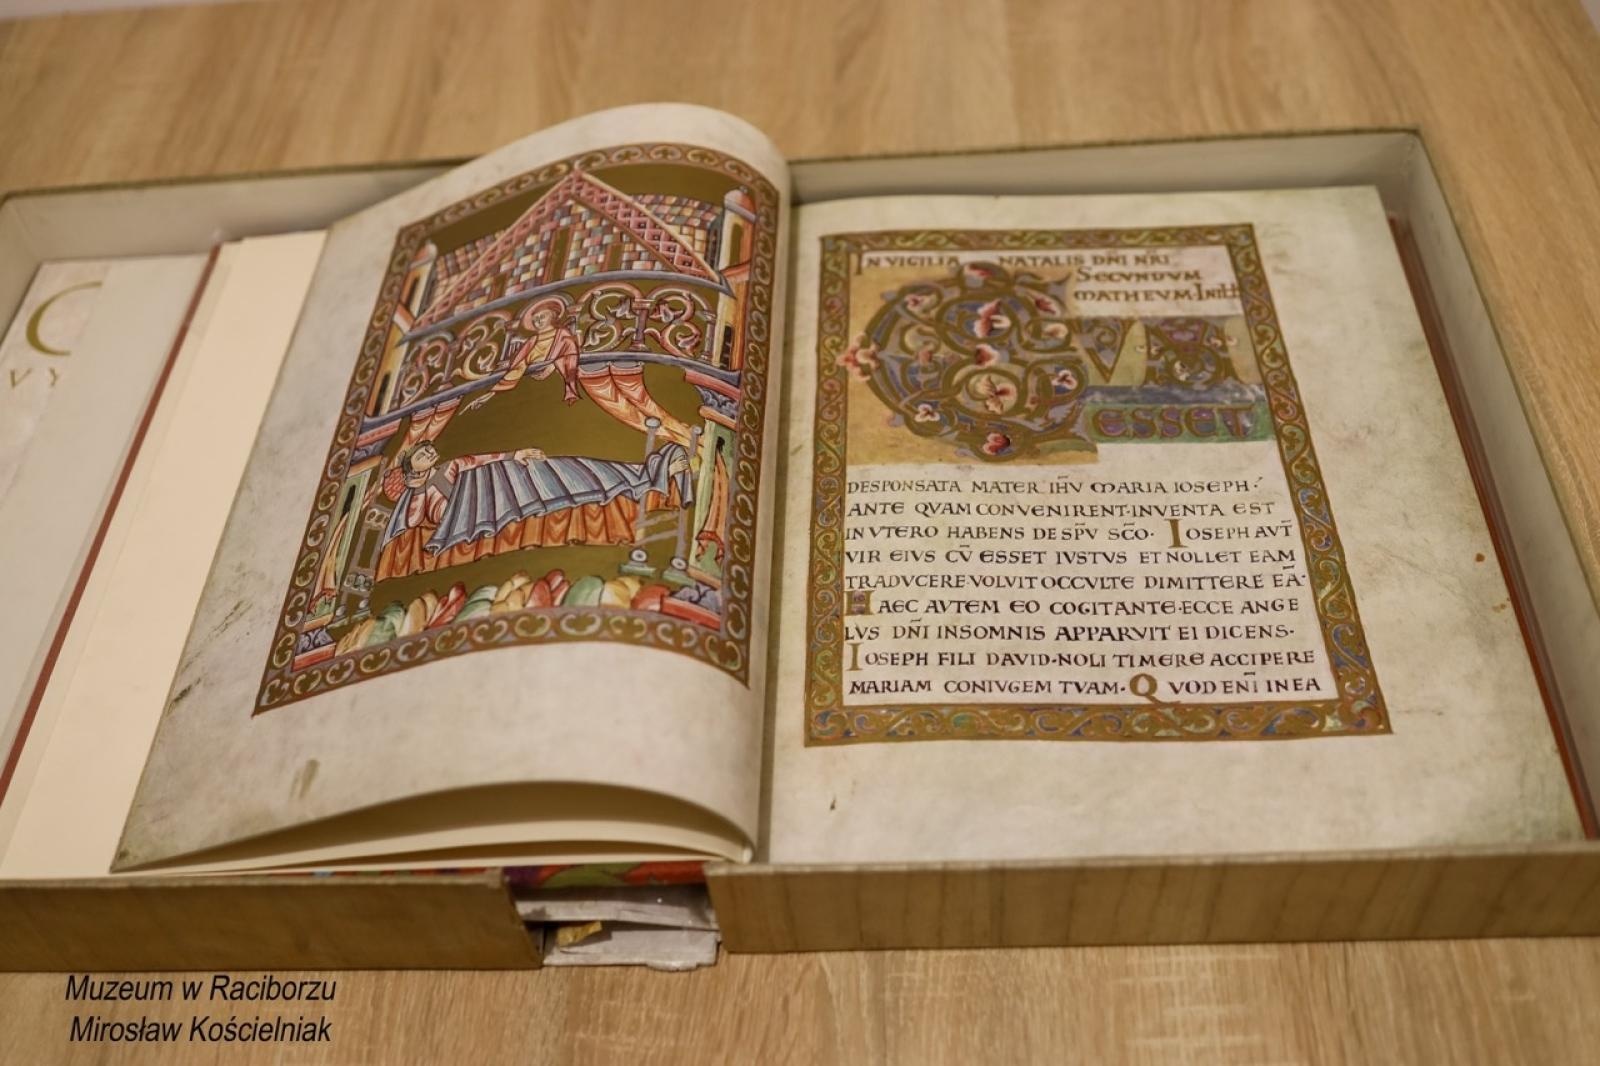 C
V Y
IN VIGILIA NATALIS DN̄I NR̄I
SECVNDVM
MATHEVM·
CVM
ESSET
DESPONSATA MATER IH̄V MARIA IOSEPH·
ANTE QVAM CONVENIRENT·INVENTA EST
IN VTERO HABENS DE SP̄V SC̄O· IOSEPH AVT̄
VIR EIVS CV̄ ESSET IVSTVS ET NOLLET EAM
TRADVCERE·VOLVIT OCCVLTE DIMITTERE EĀ·
HAEC AVTEM EO COGITANTE·ECCE ANGE
LVS DN̄I INSOMNIS APPARVIT EI DICENS·
IOSEPH FILI DAVID·NOLI TIMERE ACCIPERE
MARIAM CONIVGEM TVAM· QVOD ENĪ IN EA
Muzeum w Raciborzu
Mirosław Kościelniak